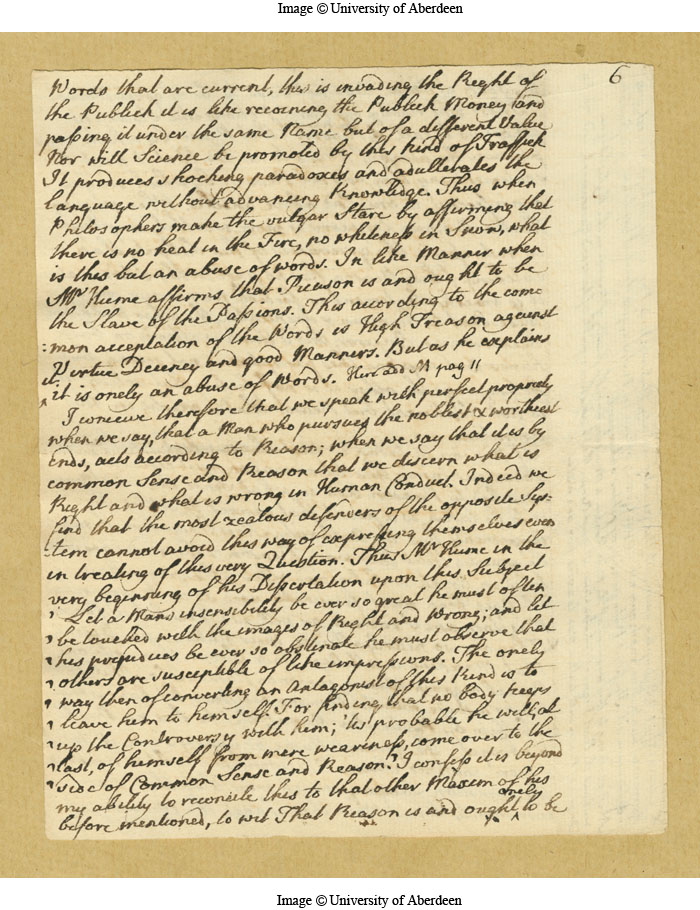 Image © University of Aberdeen
6
Words that are current, this is invading the Right of
the Publick it is like recoining the Publick Money and
passing it under the same Name but of a different Value
Nor will Science be promoted by this kind of Traffick
It produces shocking paradoxes and adulterates the
language without advancing Knowledge. Thus when
Philosophers make the vulgar Stare by affirming that
there is no heat in the Fire, no whiteness in Snow, what
is this but an abuse of words. In like Manner when
Mr Hume affirms that Reason is and ought to be
the Slave of the Passions. This according to the com
:mon acceptation of the Words is High Treason against
Virtue Decency and good Manners. But as he explains
it it is onely an abuse of words. Here add M pag 11
I conceive therefore that we speak with perfect propriety
when we say, that a Man who pursues the noblest & worthiest
ends, acts according to Reason; when we say that it is by
common Sense and Reason that we discern what is
Right and what is wrong in Human Conduct. Indeed we
find that the most zealous defenders of the opposite Sys:
:tem cannot avoid this way of expressing themselves even
in treating of this very Question. Thus Mr Hume in the
very beginning of his Dissertation upon this Subject
' Let a Mans insensibility be ever so great he must often
' be touched with the images of Right and Wrong; and let
' his prejudices be ever so obstinate he must observe that
' others are susceptible of like impressions. The onely
' way then of converting an Antagonist of this Kind is to
' leave him to himself. For finding that no body keeps
' up the Controversy with him; 'tis probable he will, at
' last, of himself from mere weariness, come over to the
' side of Common Sense and Reason.' I confess it is beyond
my ability to reconcile this to that other Maxim of his
before mentioned, to wit That Reason is and ought onely to be
Image © University of Aberdeen